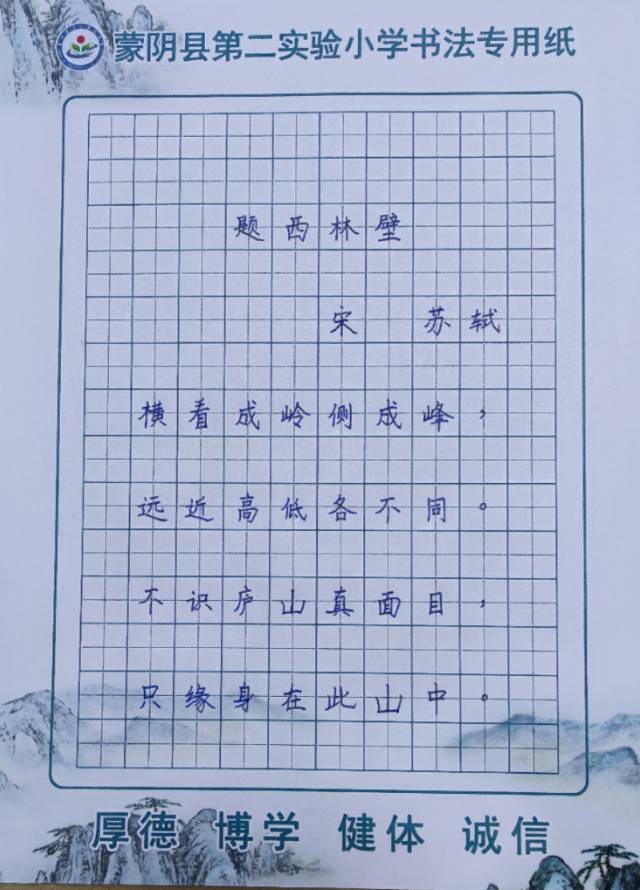 蒙阴县第二实验小学书法专用纸
题西林壁
宋 苏轼
横看成岭侧成峰，
远近高低各不同。
不识庐山真面目，
只缘身在此山中。
厚德 博学 健体 诚信